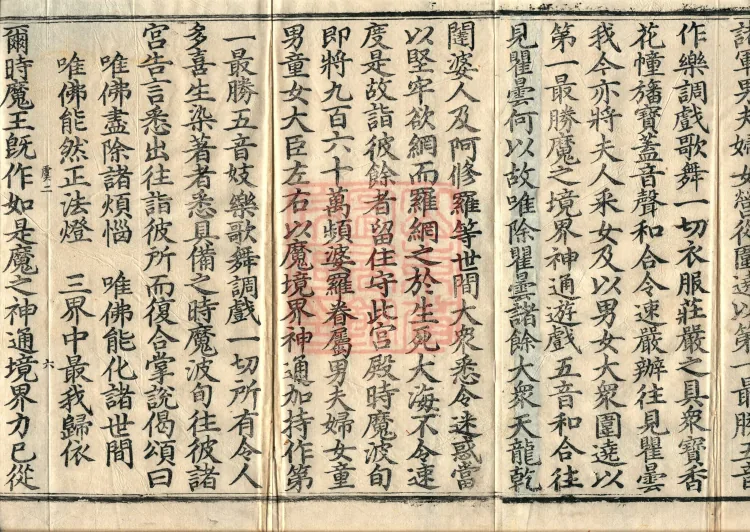 諸軍男夫婦女營從圍遶以第一最勝五音
作樂調戲歌舞一切衣服莊嚴之具衆寶香
花幢旛寶蓋音聲和合令速嚴辦往見瞿曇
我今亦將夫人婇女及以男女大衆圍遶以
第一最勝魔之境界神通遊戲五音和合往
見瞿曇何以故唯除瞿曇諸餘大衆天龍乾
闥婆人及阿修羅等世間大衆悉令迷惑當
以堅牢欲網而羅網之於生死大海不令速
度是故詣彼餘者留住守此宮殿時魔波旬
即將九百六十萬頻婆羅眷屬男夫婦女童
男童女大臣左右以魔境界神通加持作第
一最勝五音妓樂歌舞調戲一切所有令人
多喜生染著者悉具備之時魔波旬往彼諸
宮告言悉出往詣彼所而復合掌說偈頌曰
唯佛能然正法燈　三界中最我歸依
唯佛盡除諸煩惱　唯佛能化諸世間
虞二　六
爾時魔王旣作如是魔之神通境界力已從